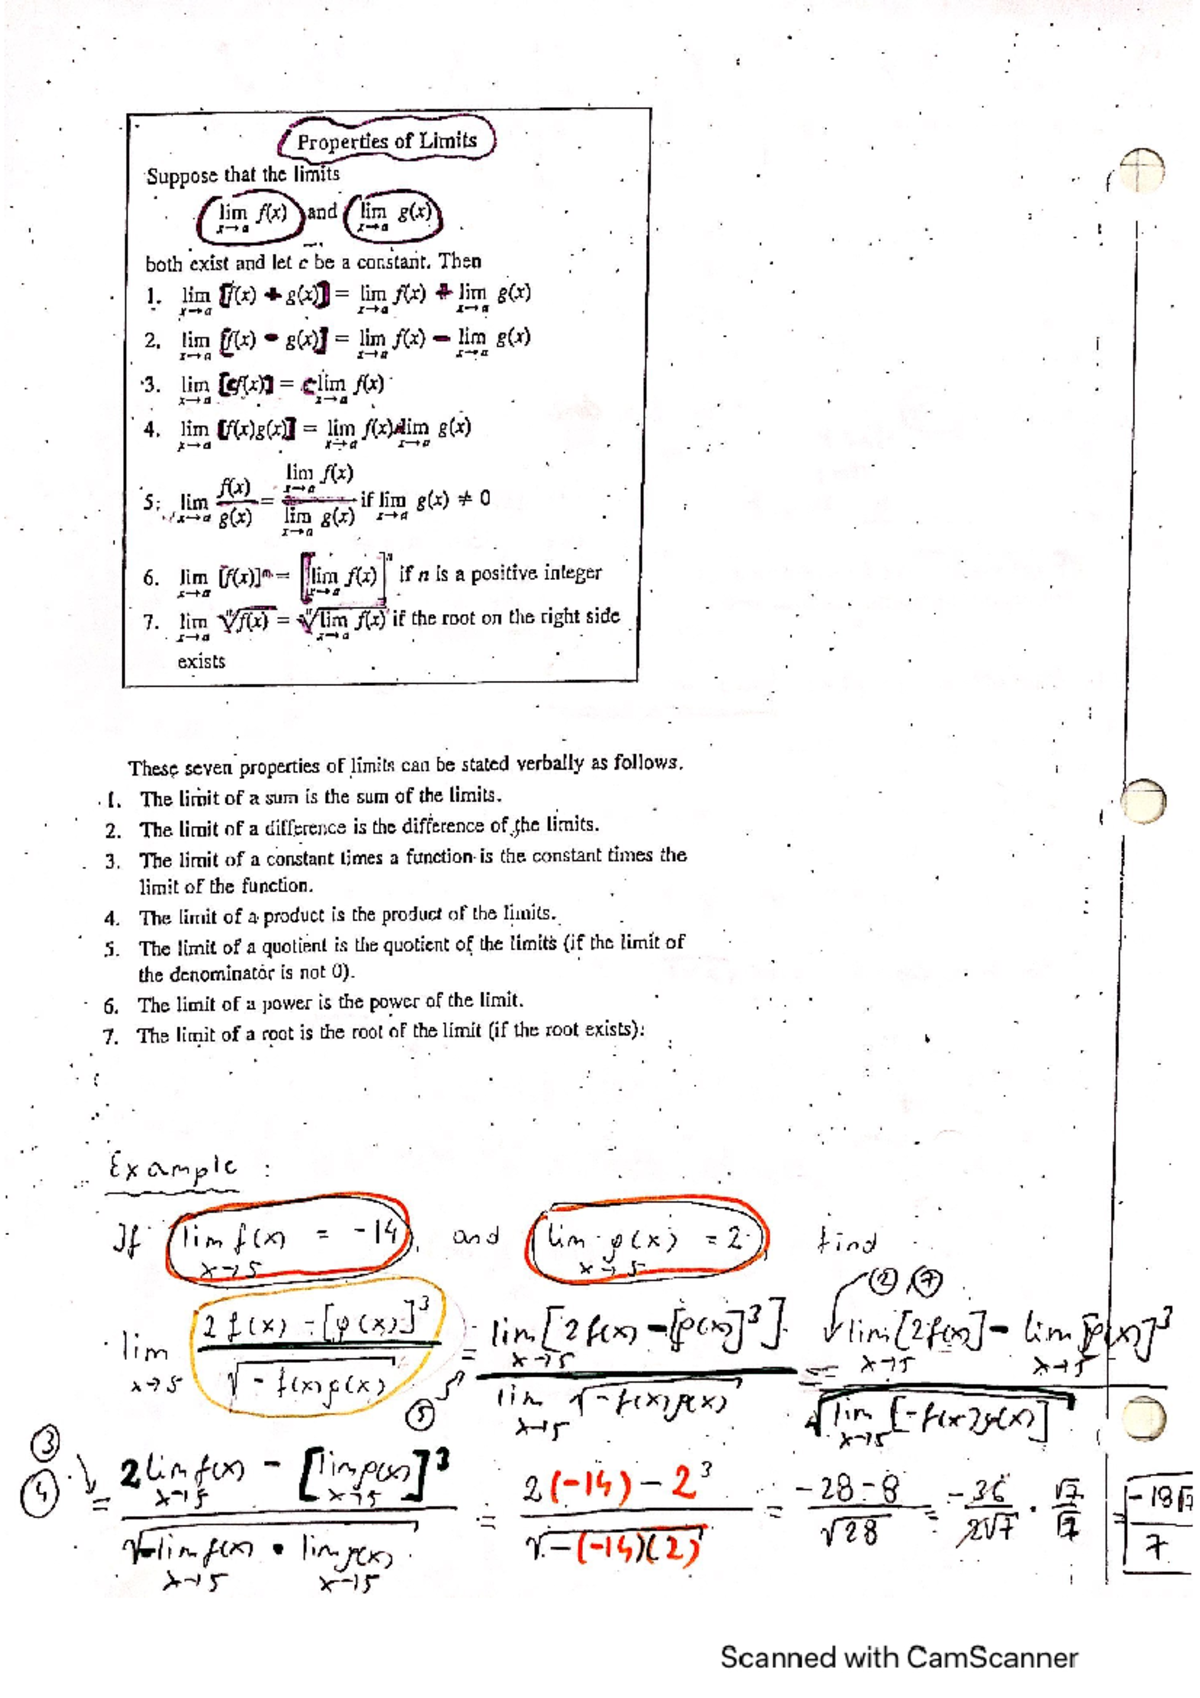 Properties of Limits
Suppose that the limits
lim x→a f(x) and lim x→a g(x)
both exist and let c be a constant. Then
1. lim x→a [f(x) + g(x)] = lim x→a f(x) + lim x→a g(x)
2. lim x→a [f(x) - g(x)] = lim x→a f(x) - lim x→a g(x)
3. lim x→a [cf(x)] = c lim x→a f(x)
4. lim x→a [f(x)g(x)] = lim x→a f(x) · lim x→a g(x)
5. lim x→a f(x)/g(x) = lim x→a f(x) / lim x→a g(x) if lim x→a g(x) ≠ 0
6. lim x→a [f(x)]ⁿ = [lim x→a f(x)]ⁿ if n is a positive integer
7. lim x→a ⁿ√f(x) = ⁿ√lim x→a f(x) if the root on the right side
exists
These seven properties of limits can be stated verbally as follows.
1. The limit of a sum is the sum of the limits.
2. The limit of a difference is the difference of the limits.
3. The limit of a constant times a function is the constant times the
limit of the function.
4. The limit of a product is the product of the limits.
5. The limit of a quotient is the quotient of the limits (if the limit of
the denominator is not 0).
6. The limit of a power is the power of the limit.
7. The limit of a root is the root of the limit (if the root exists).
Example :
If lim x→5 f(x) = -14, and lim x→5 g(x) = 2, find
② ⑦
lim x→5 (2f(x) - [g(x)]³) / √(-f(x)g(x)) = lim x→5 [2f(x) - [g(x)]³] / lim x→5 √(-f(x)g(x)) = (lim x→5 [2f(x)] - lim x→5 [g(x)]³) / √(lim x→5 [-f(x)g(x)])
⑤
③
④ = (2 lim x→5 f(x) - [lim x→5 g(x)]³) / √(-lim x→5 f(x) · lim x→5 g(x)) = (2(-14) - 2³) / √(-(-14)(2)) = (-28-8)/√28 = -36/2√7 · √7/√7 = -18√7/7
Scanned with CamScanner